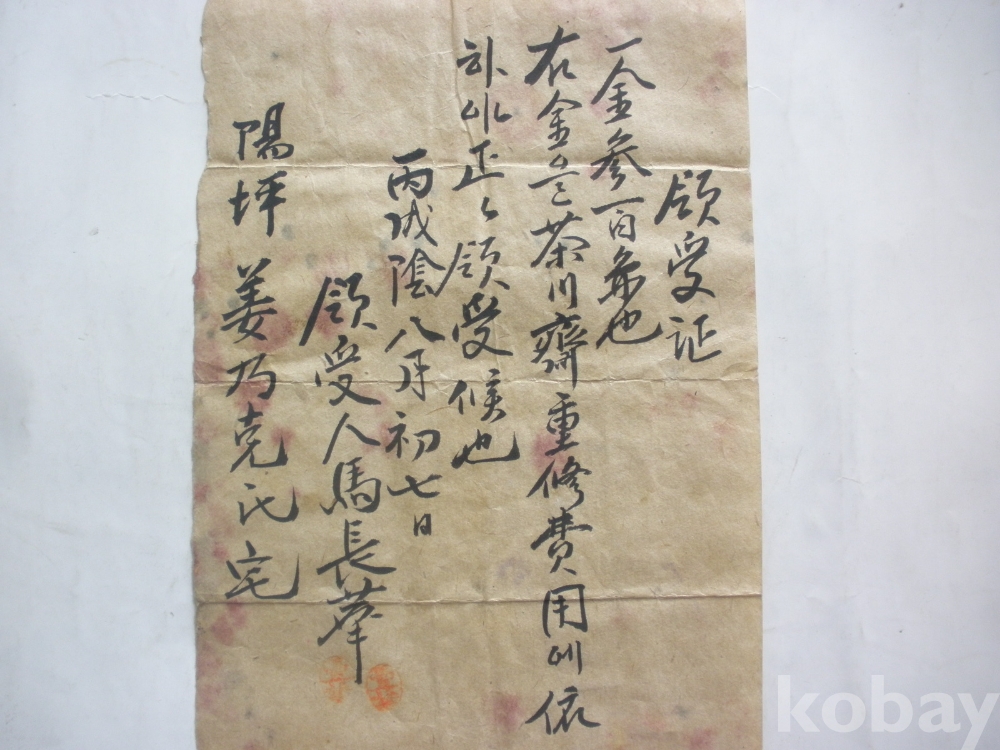 領受证
一金參百条也
右金 茶川齋重修費用 依
正々領受候也
丙戌陰八月初七日
領受人馬長華
陽坪 姜乃克氏宅
kobay